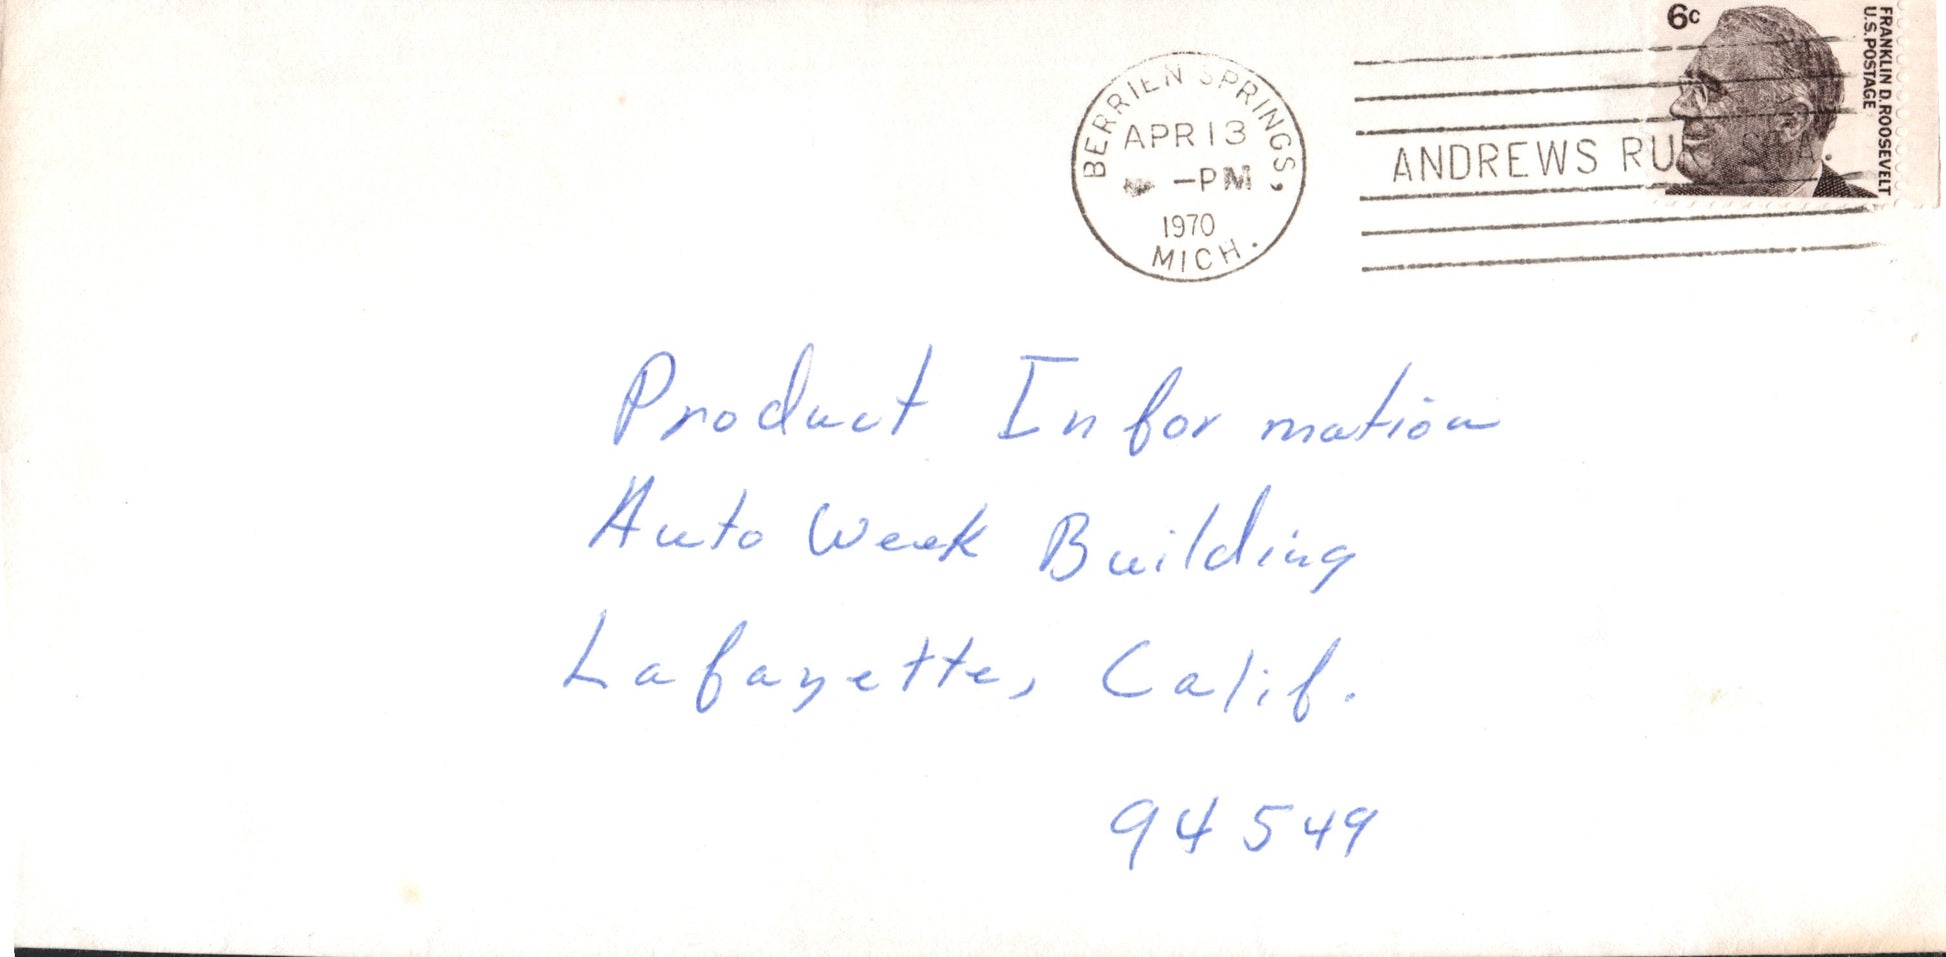 6c
FRANKLIN D. ROOSEVELT
U.S. POSTAGE
BERRIEN SPRINGS,
APR 13
-PM
1970
MICH.
ANDREWS STA.
Product Information
Auto Week Building
Lafayette, Calif.
94549